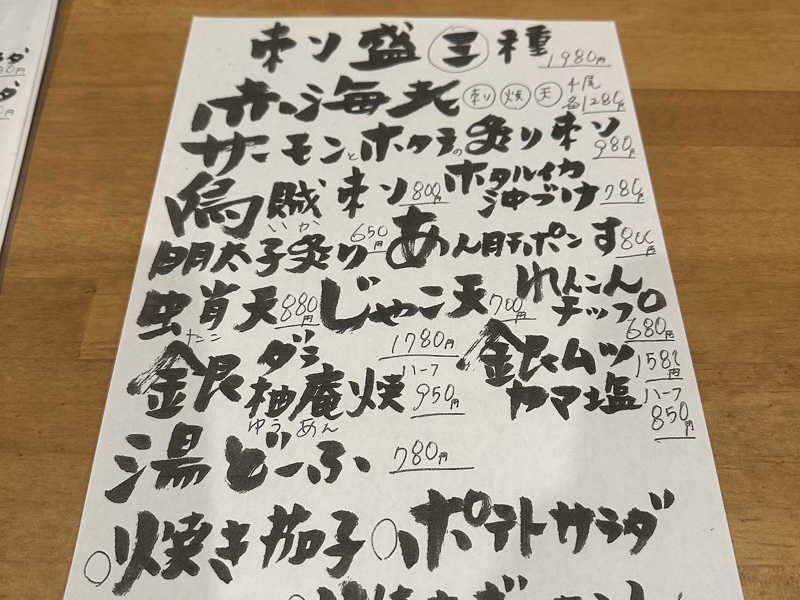 刺し盛 三種 1980円
赤海老 刺 焼 天 1尾 各1280円
サーモンとホタテの炙り刺し 980円
烏賊刺し 800円 ホタルイカ沖づけ 780円
いか
明太子炙り 650円 あん肝ポンす 800円
蛸天 880円 じゃこ天 700円 れんこんチップ 680円
たこ
銀ダラ柚庵焼 1780円 ハーフ 950円
ゆうあん
銀ムツカマ塩 1580円 ハーフ 850円
湯どーふ 780円
焼き茄子 ポテトサラダ